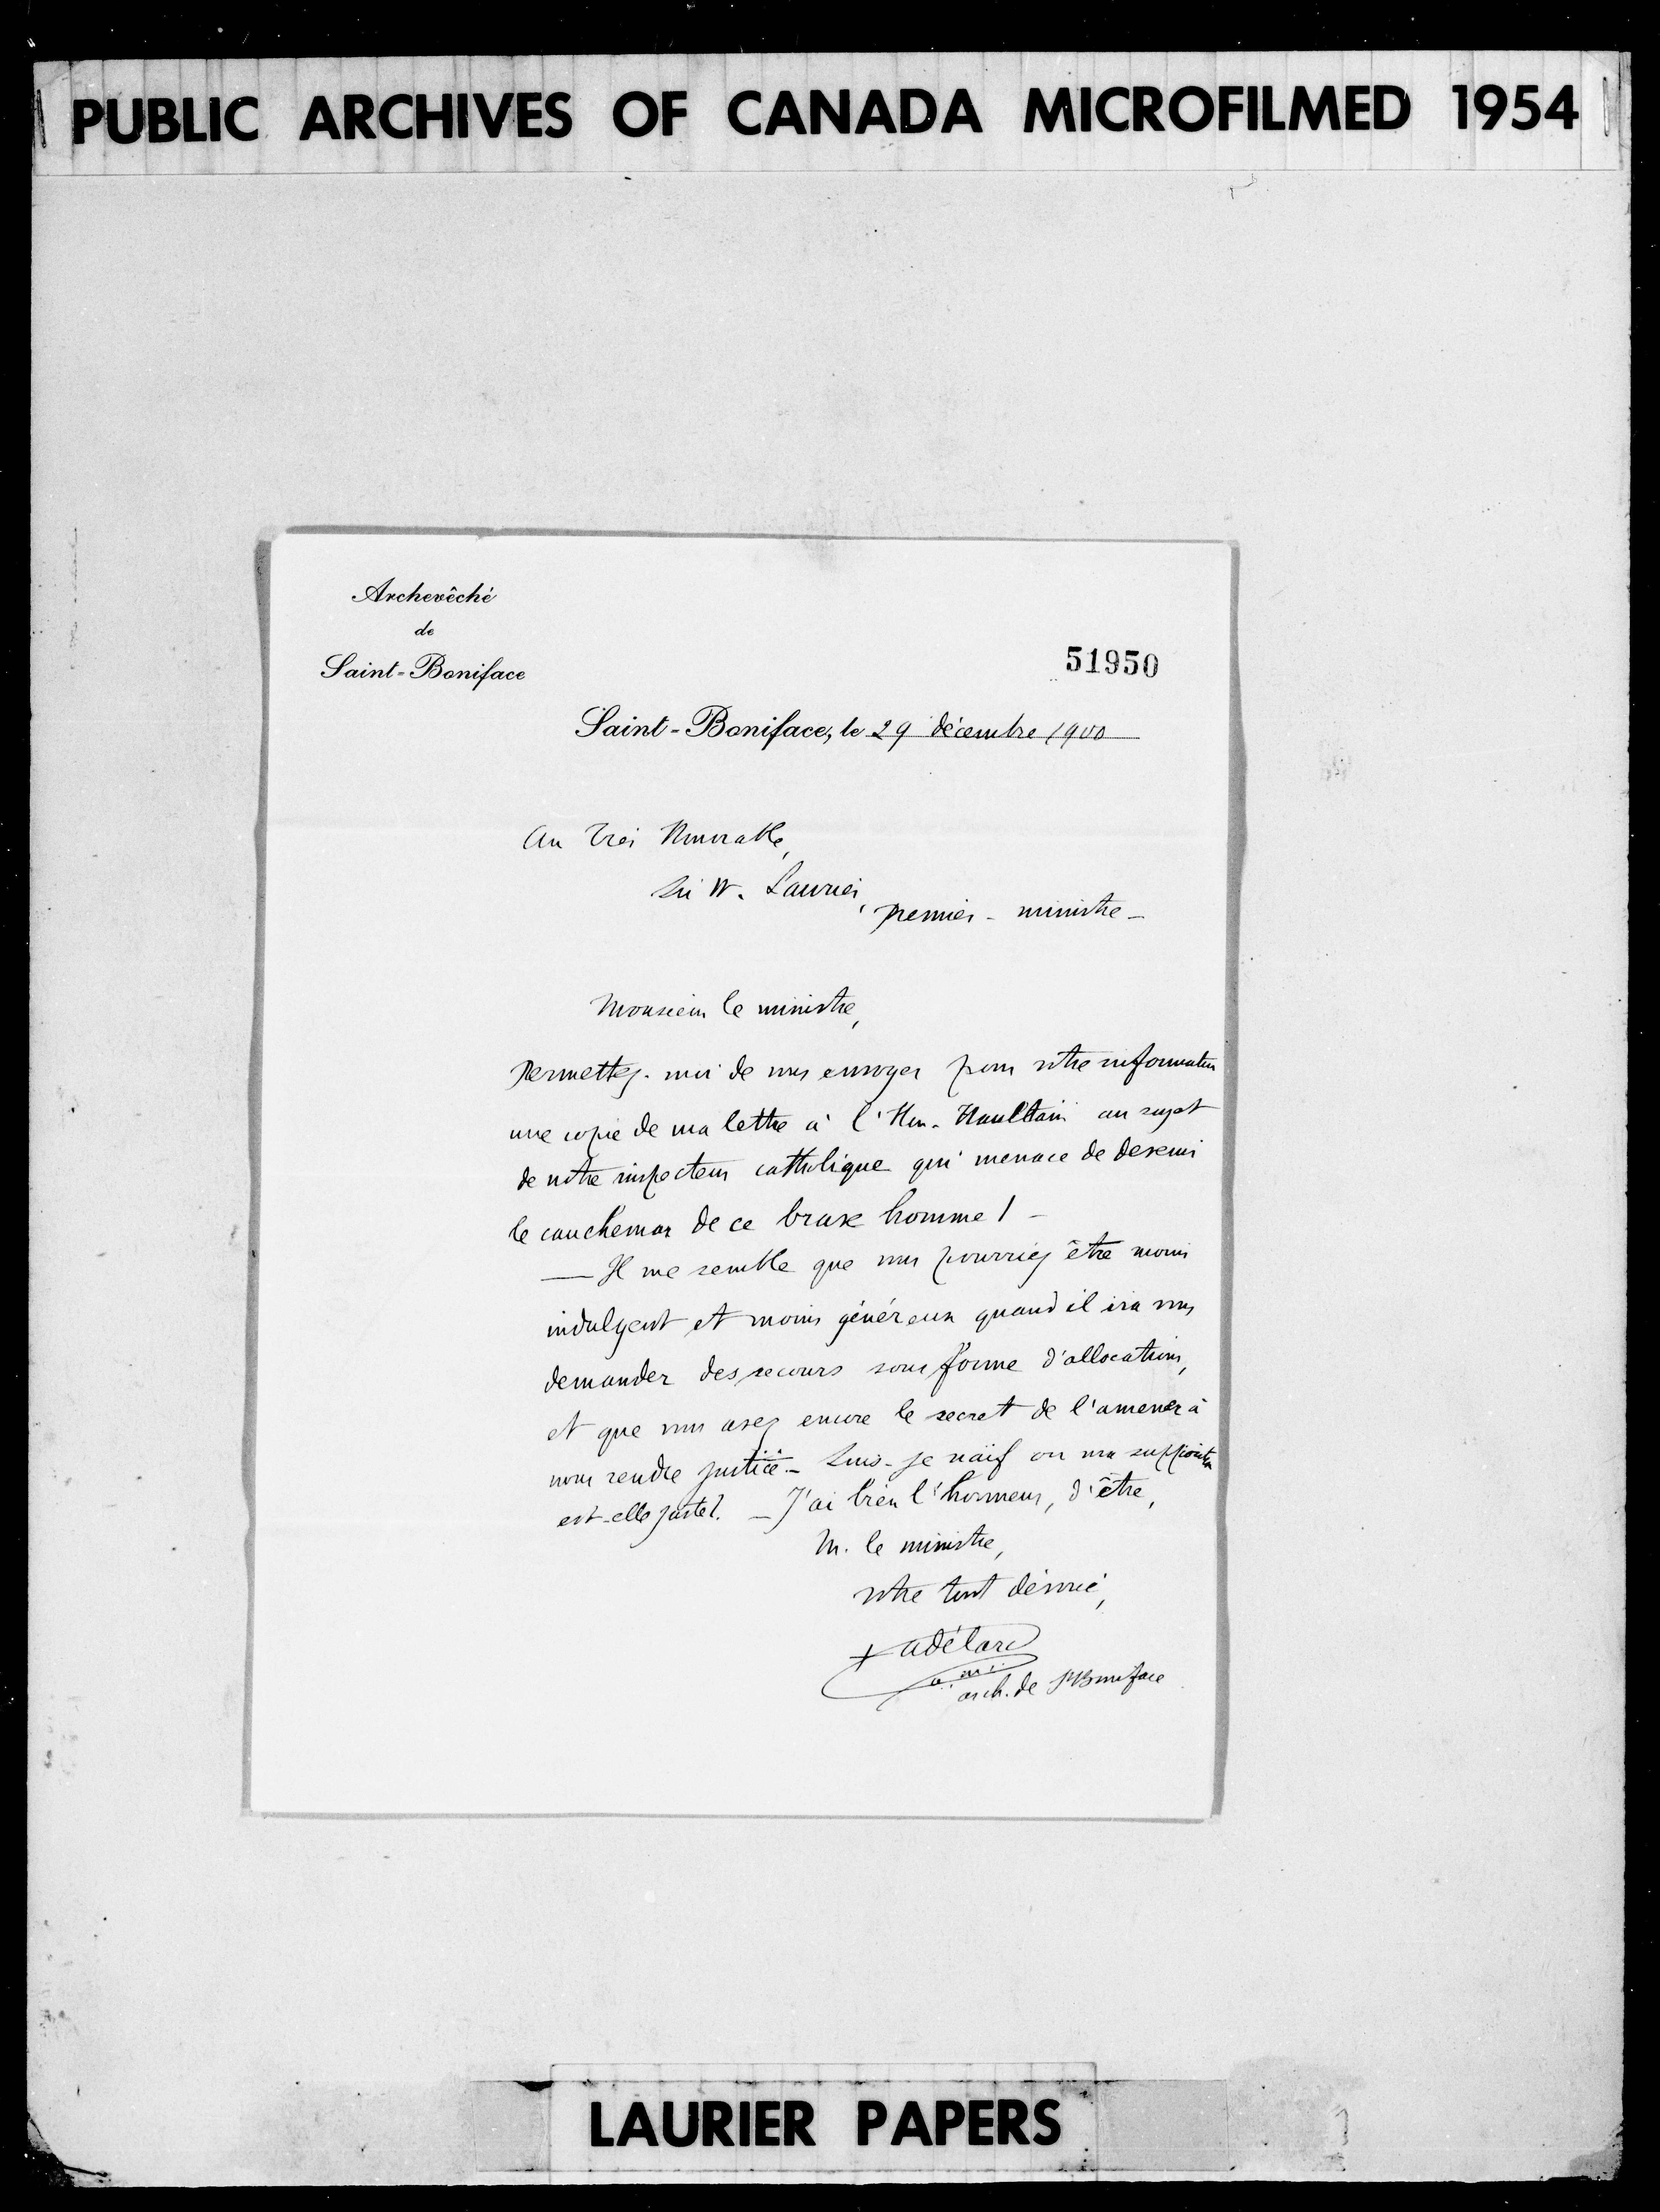 PUBLIC ARCHIVES OF CANADA MICROFILMED 1954
Archevêché
de
Saint-Boniface
51950
Saint-Boniface, le 29 décembre 1900
Au Très Honorable,
Sir W. Laurier,
premier-ministre-
Monsieur le ministre,
Permettez-moi de vous envoyer pour votre information
une copie de ma lettre à l'Hon. Haultain au sujet
de notre inspecteur catholique qui menace de devenir
le cauchemar de ce brave homme! -
— Il me semble que vous pourriez être moins
indulgent et moins généreux quand il ira vous
demander des secours sous forme d'allocations,
et que vous avez encore le secret de l'amener à
nous rendre justice. - Suis-je naïf ou ma supposition
est-elle juste?. - J'ai bien l'honneur, d'être,
M. le ministre,
votre tout dévoué,
+ Adélard
o.m.i.
arch. de St Boniface
LAURIER PAPERS